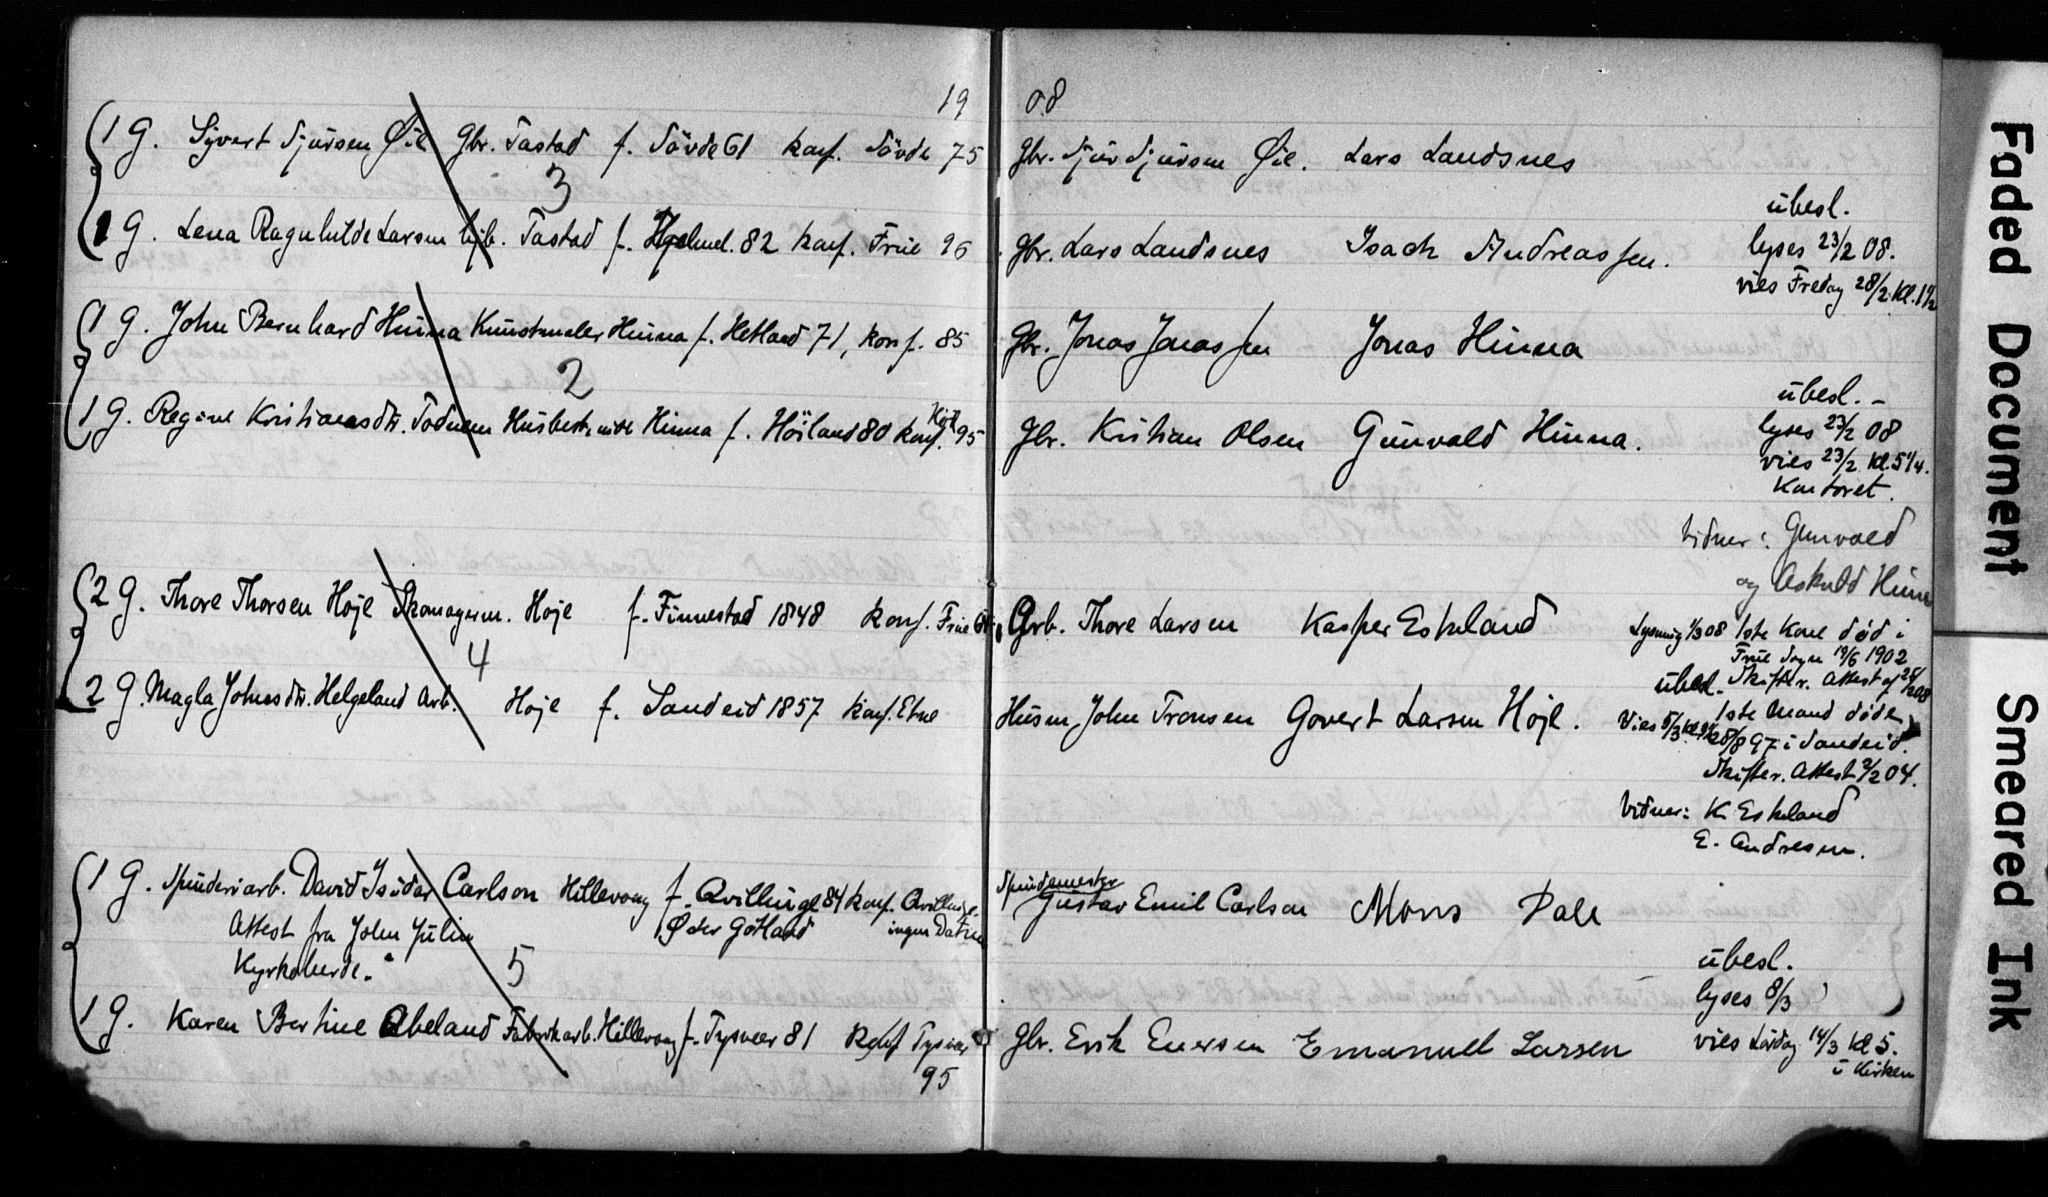 19 08
1 G. Sjvert Sjursen Øie Gbr. Tastad f. Sövde 61 konf. Sövde 75 Gbr. Sjur Sjursen Øie. Lars Landsnes
3
übesl.
1 G. Lena Ragnhilde Larsen hjb. Tastad f. Hjelmel. 82 konf. Frue 96 Gbr. Lars Landsnes Isach Andreassen. lyses 23/2 08.
vies Fredag 28/2 Kl. 1½
1 G. John Bernhard Hinna Kunstmaler Hinna f. Hetland 71, konf. 85 Gbr. Jonas Jonassen Jonas Hinna
2
übesl. –
1 G. Regine Kristiansdtr. Todnem Husbest. Hinna f. Höiland 80 konf. Höil. 95 Gbr. Kristian Olsen Gunvald Hinna. lyses 23/2 08
vies 23/2 Kl. 5 1/4.
Kontoret.
Vidner: Gunvald
og Askuld Hinna
2 G. Thore Thorsen Høje Skomagerm. Høje f. Finnestad 1848 konf. Frue Grb. Thore Larsen Kasper Eskeland Lysning 1/3 08 1ste Kone död i
Frue Sogn 19/6 1902
4
übesl. Skifter. Attest af
2 G. Magla Johnsdtr. Helgeland Arb. Høje f. Sandeid 1857 konf. Etne Husm. John Tronsen Govert Larsen Höje. 1ste Mand döde
Vies 5/3 28/8 97 i Sandeid.
Skifter. Attest 2/2 04.
Vidner: K. Eskeland
E. Andresen.
1 G. Spinderiarb. David Isidor Carlson Hillevaag f. Qvillinge 84 konf. Qvillinge Spindemester Gustav Emil Carlson Mons Dale
Attest fra John Julin Øster Götland ingen Datum
Kyrkoherde. 5
übesl.
lyses 8/3
1 G. Karen Bertine Abeland Fabrikarb. Hillevaag f. Tysvær 81 Konf Tysvær 95 Gbr. Erik Enersen Emanuel Larsen vies Lördag 14/3 Kl 5.
i Kirken
Faded Document
Smeared Ink